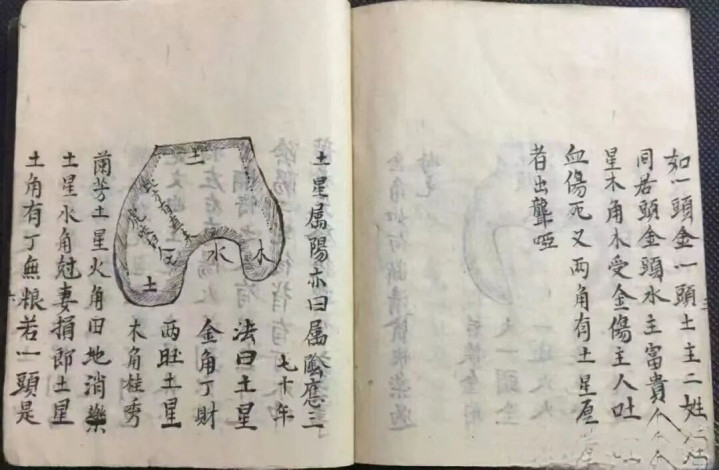 如一頭金一頭土主二姓
同若頭金頭水主富貴人
星木角木受金傷主人吐
血傷死又两角有土星
者出聾啞
土星属陽亦曰属陰應三
七十年
法曰土星
金角丁財
两旺土星
木角桂秀
蘭芳土星火角田地消樂
土星水角尅妻損郎土星
土角有丁無粮若一頭是
土
木
水
土